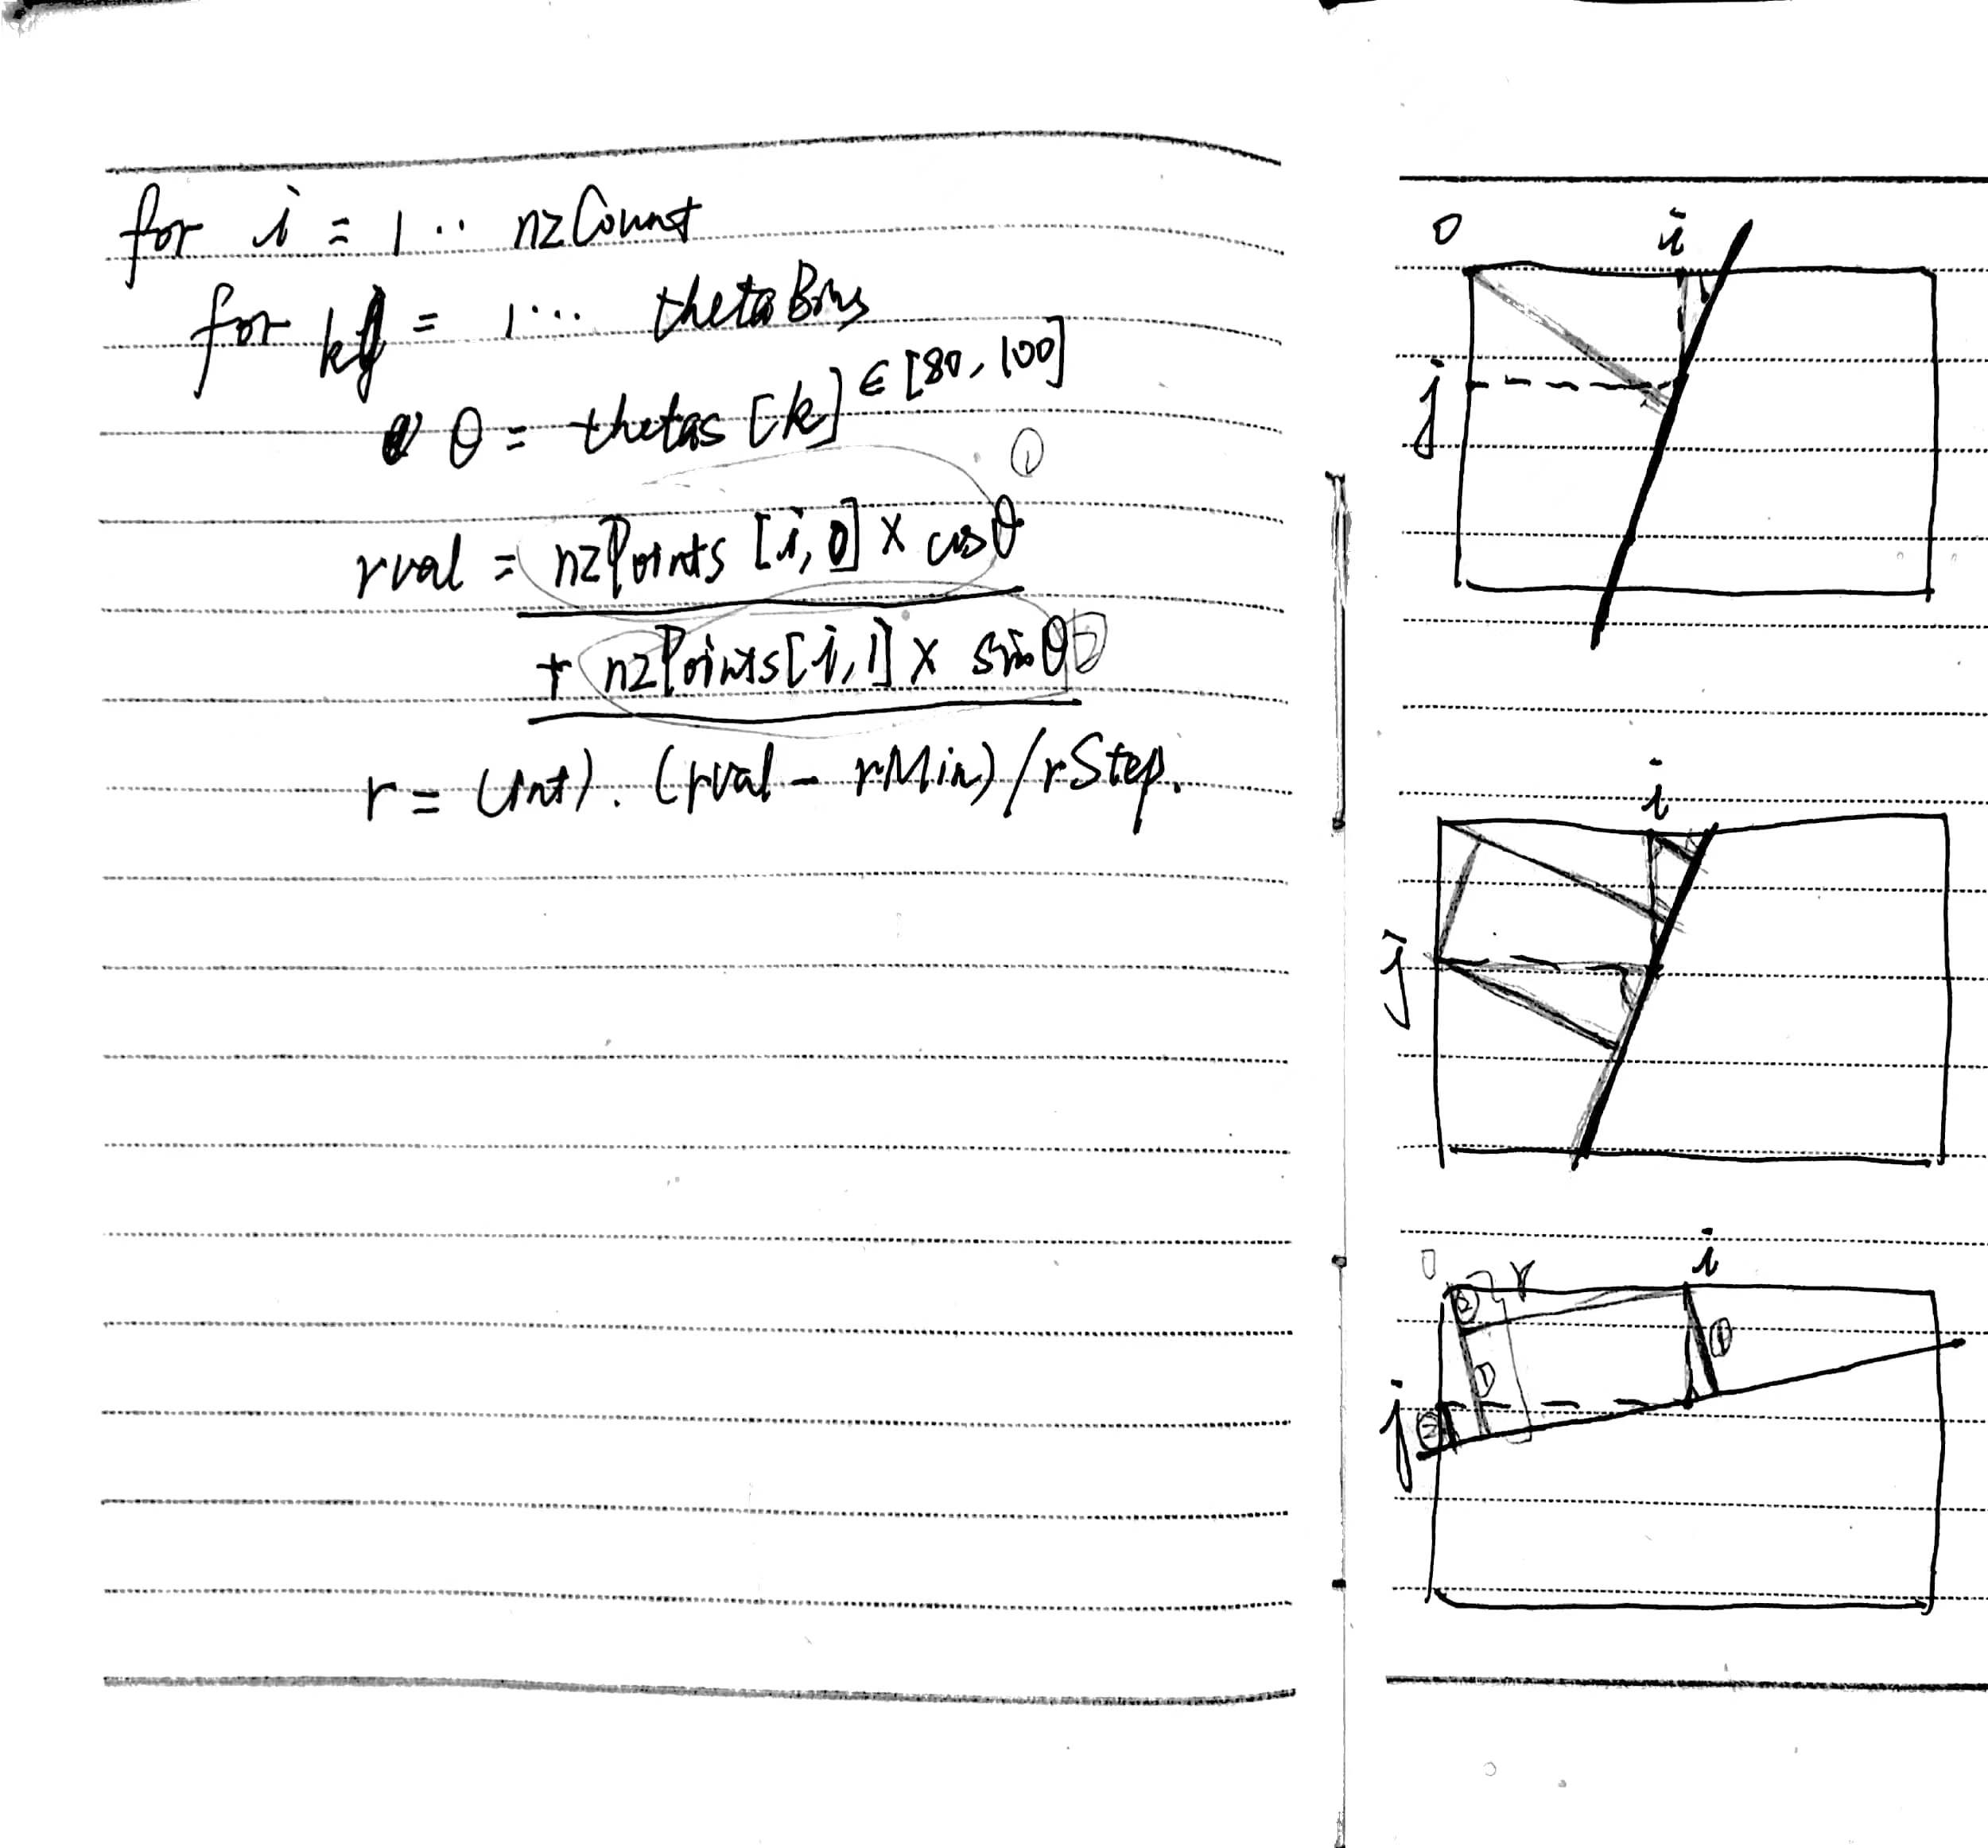 for i = 1 ·· nzCount
for k = 1 ··· thetaBins
θ = thetas [k] ∈ [80, 100]
①
rval = nzPoints [i, 0] × cosθ
+ nzPoints[i, 1] × sinθ ②
r = (Int). (rval - rMin) / rStep.
0 i
j
i
j
0 r i
② ①
①
j ②